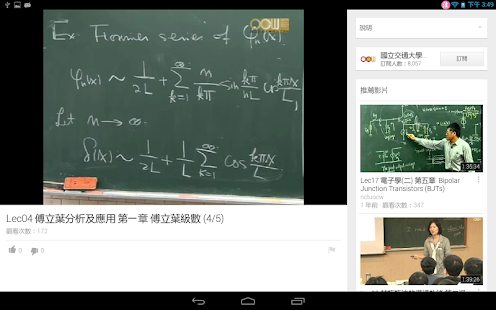 下午 3:49
Ex Fourier series of φₙ(x).
φₙ(x) ~ 1/2L + ∑ₖ₌₁^∞ n/kπ sin kπ/nL cos kπx/L
Let n → ∞
δ(x) ~ 1/2L + 1/L ∑ₖ₌₁^∞ cos kπx/L
Lec04 傅立葉分析及應用 第一章 傅立葉級數 (4/5)
觀看次數：172
0
0
說明
國立交通大學...
訂閱人數：8,057
訂閱
推薦影片
1:35:34
Lec17 電子學(二) 第五章 Bipolar
Junction Transistors (BJTs)
nctuocw
1 年前 觀看次數：347
1:39:26